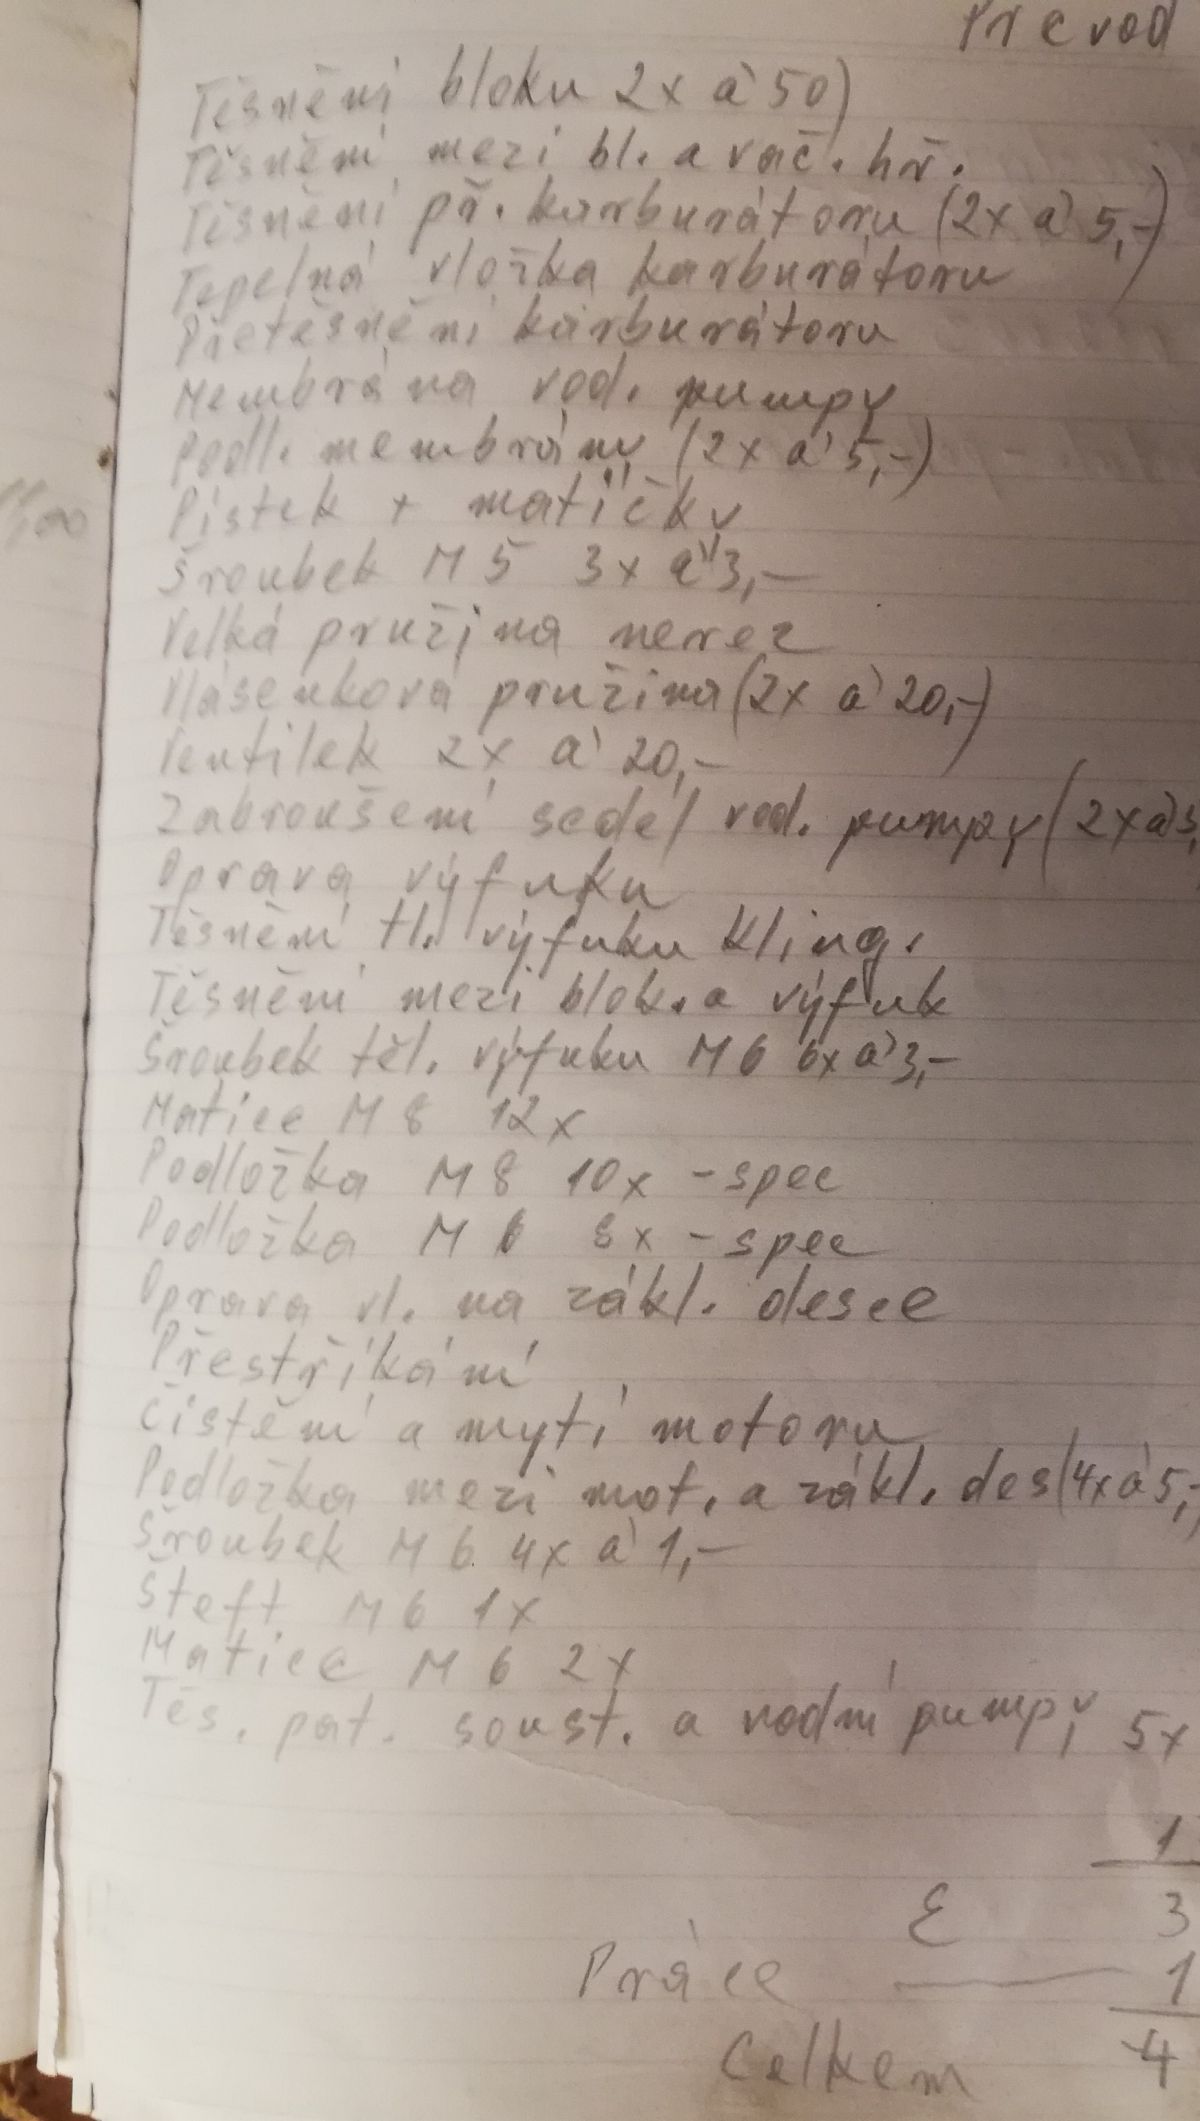 Převod
Těsnění bloku 2x à 50)
Těsnění mezi bl. a vač. hř.
Těsnění př. karburátoru (2x à 5,-)
Tepelná vložka karburátoru
Přetěsnění karburátoru
Membrána vod. pumpy
Podl. membrány (2x à 5,-)
Pístek + matičky
Šroubek M 5 3x à 3,-
Velká pružina nerez
Vlásenková pružina (2x à 20,-)
Ventilek 2x à 20,-
Zabroušení sedel vod. pumpy (2x à 3,
Oprava výfuku
Těsnění tl. výfuku kling.
Těsnění mezi blok. a výfuk
Šroubek těl. výfuku M 6 6x à 3,-
Matice M 8 12x
Podložka M 8 10x - spec
Podložka M 6 8x - spec
Oprava vl. na zákl. desce
Přestříkání
Čistění a mytí motoru
Podložka mezi mot. a zákl. des (4x à 5,-
Šroubek M 6 4x à 1,-
Šteft M 6 1x
Matice M 6 2x
Těs. pat. soust. a vodní pumpy 5x
1
Σ 3
Práce — 1
Celkem 4